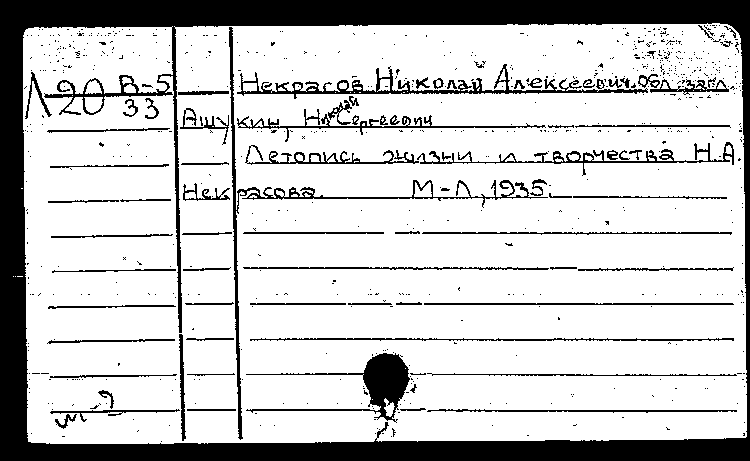 Л20 В-5
33
Некрасов Николай Алексеевич. Обл. загл.
Ашукин, Николай Сергеевич
Летопись жизни и творчества Н.А.
Некрасова. М-Л, 1935.